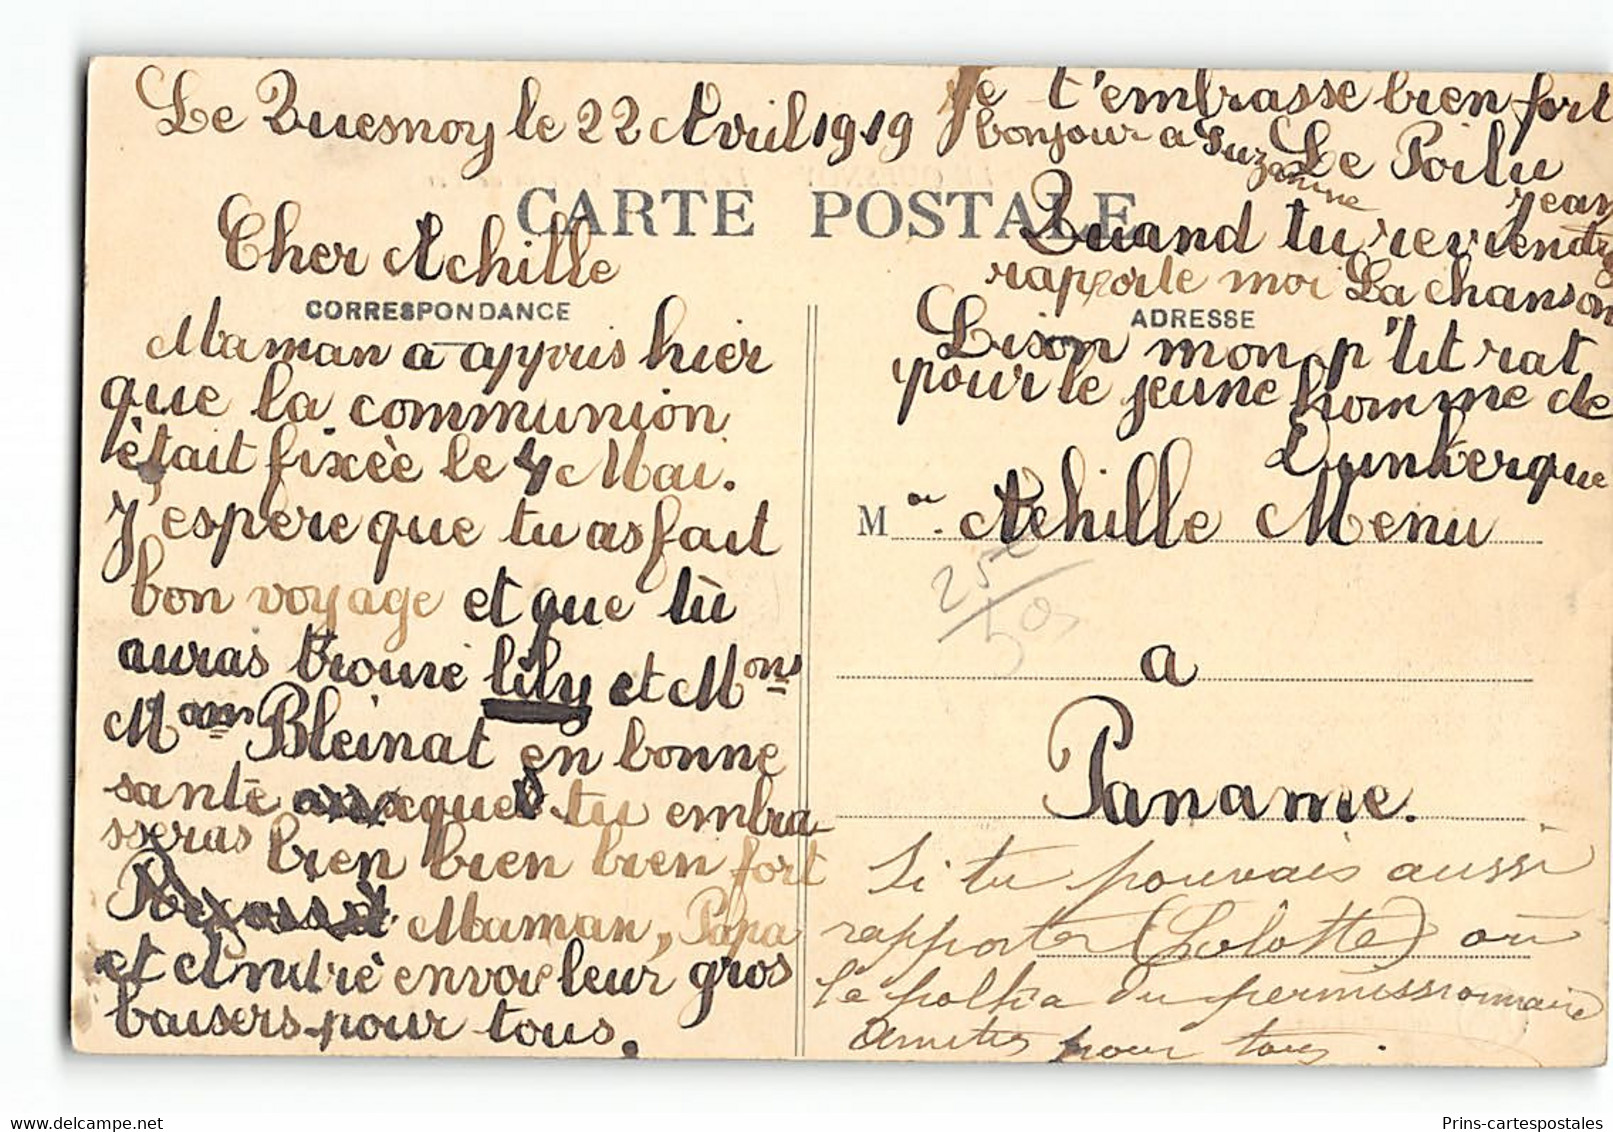 Le Quesnoy le 22 Avril 1919
CARTE POSTALE
Cher Achille
CORRESPONDANCE
Maman a appris hier
que la communion
ètait fixèe le 4 Mai.
J'espere que tu as fait
bon voyage et que tù
auras trouvé lily et Mons
Mam Bleinat en bonne
santè que tu embra-
sseras bien bien bien fort
Maman, Papa
et Andrè envoie leur gros
baisers pour tous.
Je t'embrasse bien fort
bonjour a Suzanne
Le Poilu
Jean
Quand tu reviendras
rapporte moi La chanson
ADRESSE
Lison mon p'tit rat
pour le jeune homme de
Dunkerque
Mor. Achille Menu
a
Paname.
Si tu pouvais aussi
rapporter (Lolotte) ou
la polka du permissionnaire
Amitiés pour tous.
Prins-cartespostales